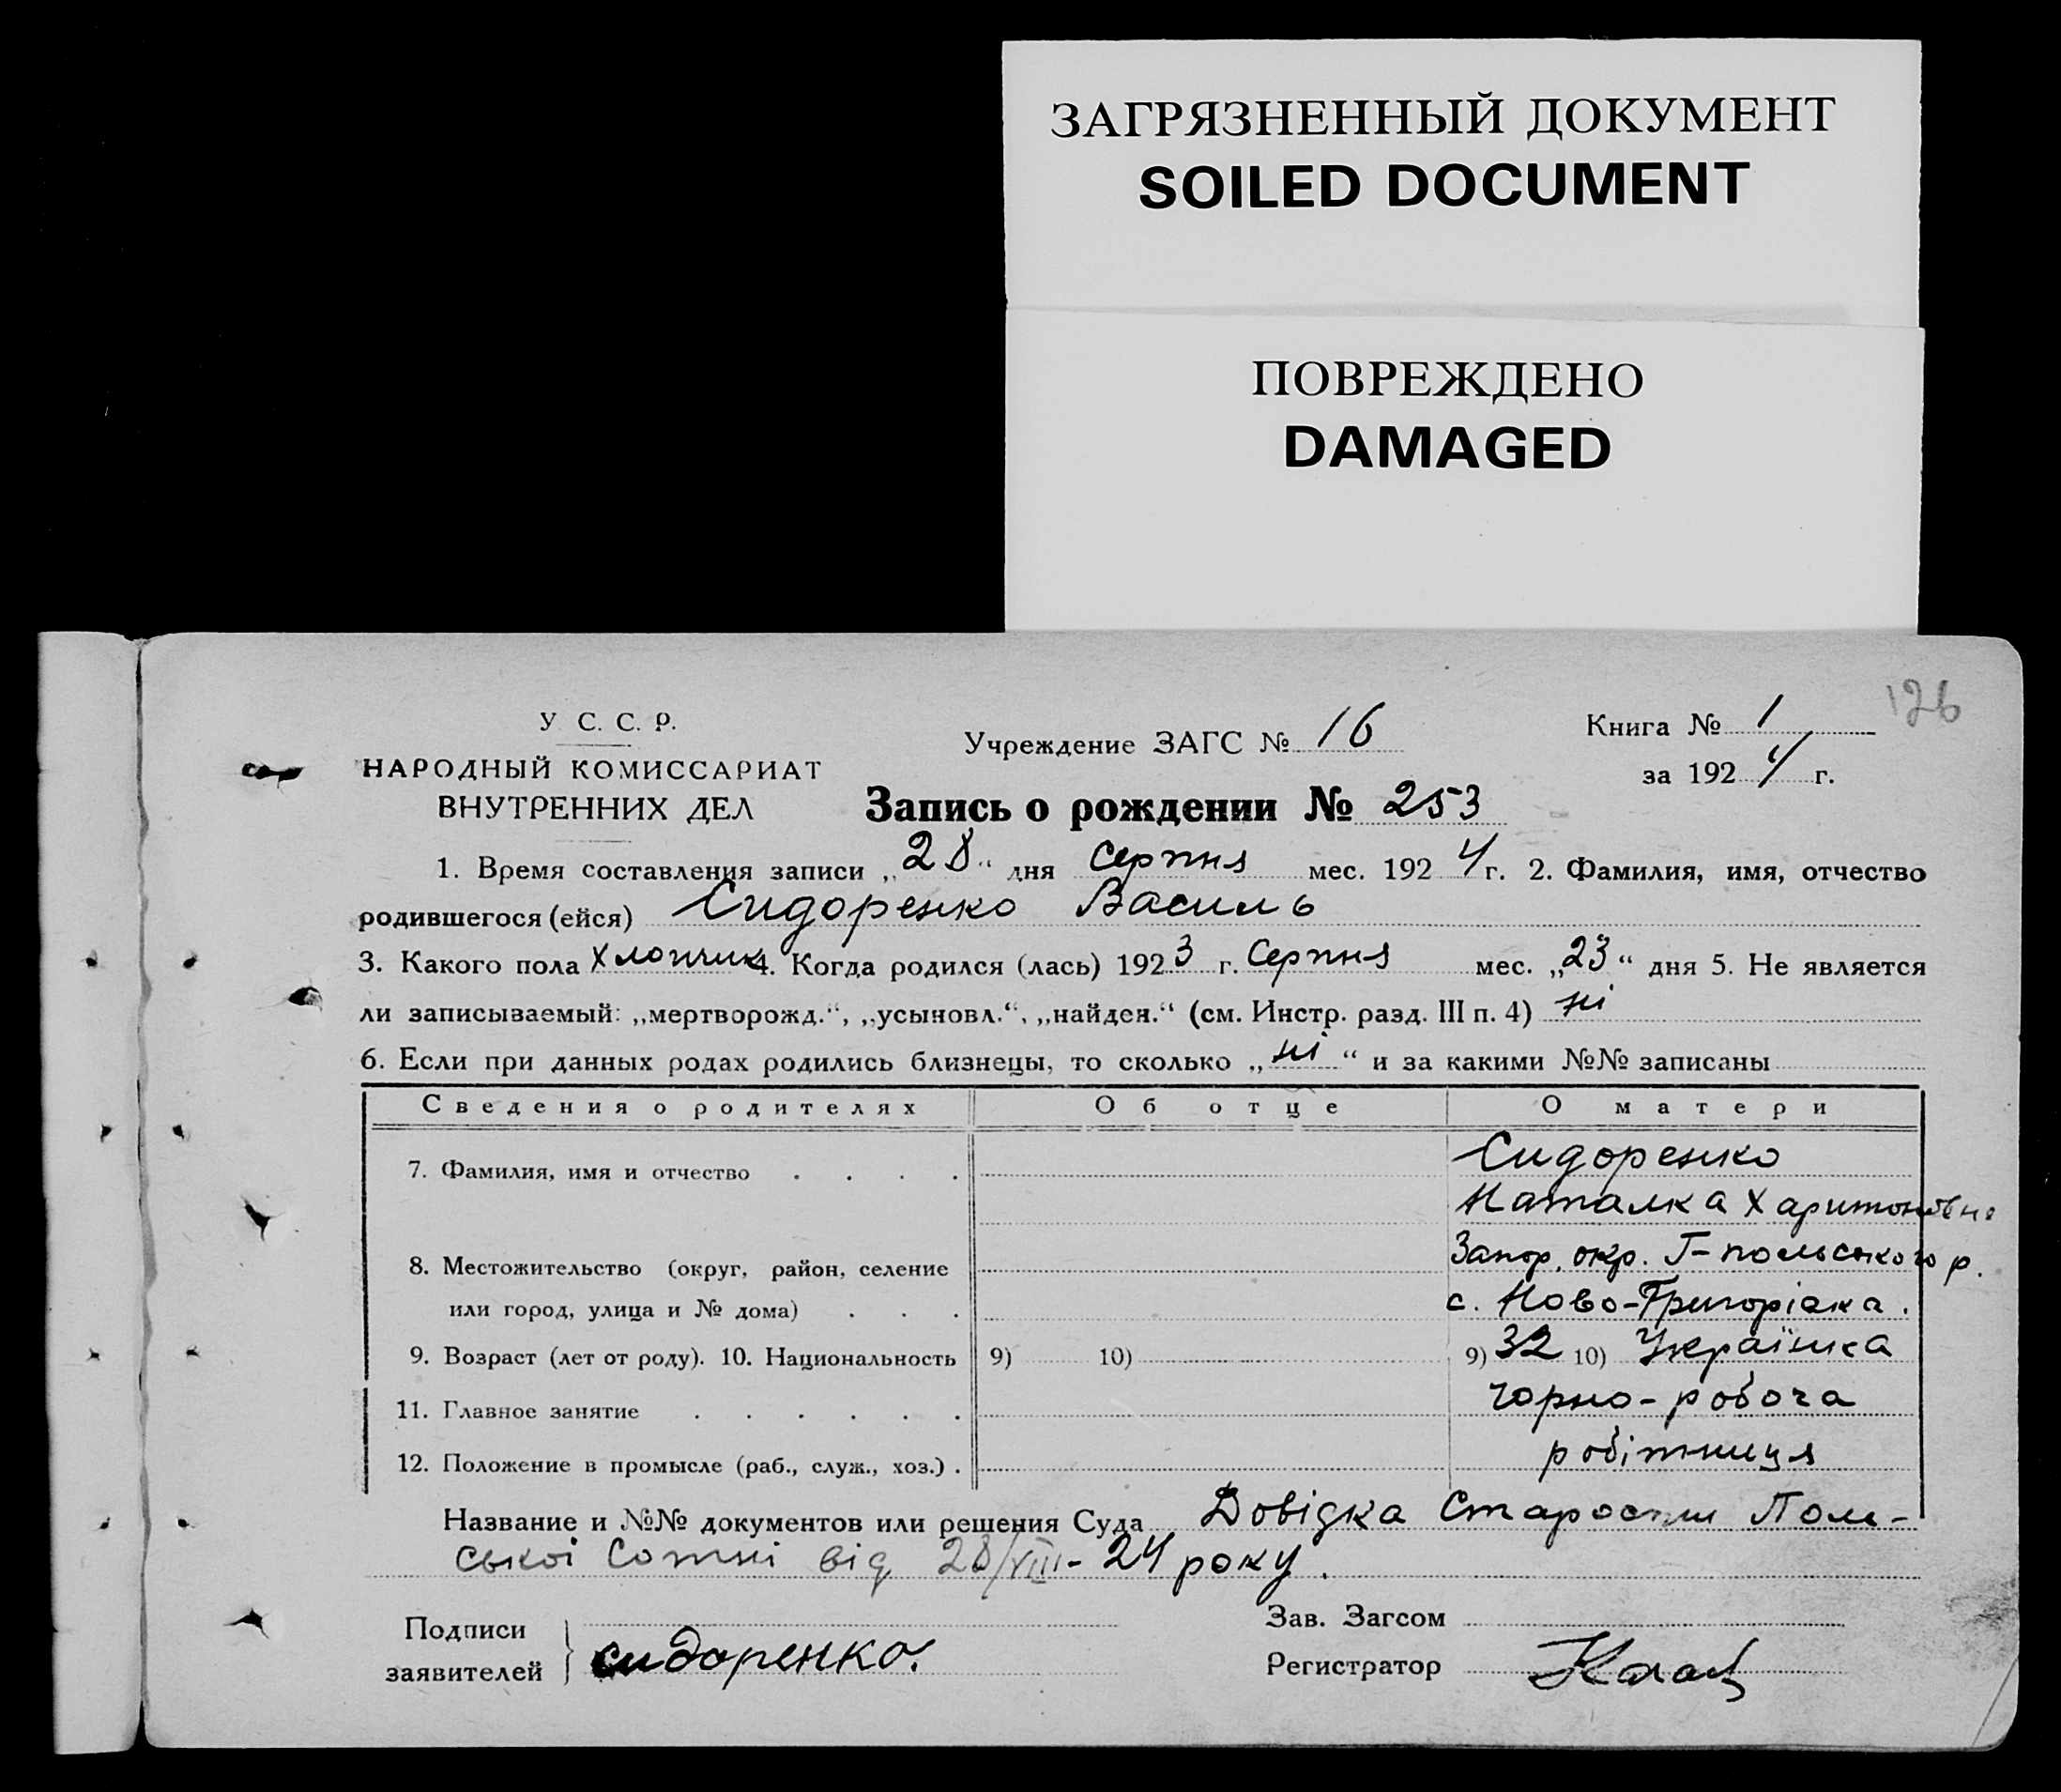 ЗАГРЯЗНЕННЫЙ ДОКУМЕНТ
SOILED DOCUMENT
ПОВРЕЖДЕНО
DAMAGED
126
У С. С. Р.
НАРОДНЫЙ КОМИССАРИАТ
ВНУТРЕННИХ ДЕЛ
Учреждение ЗАГС № 16
Книга № 1
за 1924 г.
Запись о рождении № 253
1. Время составления записи „28“ дня Серпня мес. 1924 г. 2. Фамилия, имя, отчество
родившегося (ейся) Сидоренко Василь
3. Какого пола Хлопчик 4. Когда родился (лась) 1923 г. Серпня мес. „23“ дня 5. Не является
ли записываемый: „мертворожд.“, „усыновл.“, „найден.“ (см. Инстр. разд. III п. 4) ні
6. Если при данных родах родились близнецы, то сколько „ні“ и за какими №№ записаны
Сведения о родителях Об отце О матери
7. Фамилия, имя и отчество . . . . Сидоренко
Наталка Харитоновна
8. Местожительство (округ, район, селение Запор. окр. Г-польського р.
или город, улица и № дома) . . . с. Ново-Григорівка.
9. Возраст (лет от роду). 10. Национальность 9) 10) 9) 32 10) Українка
11. Главное занятие . . . . . . чорно-робоча
12. Положение в промысле (раб., служ., хоз.) . робітниця
Название и №№ документов или решения Суда Довідка Старости Поль-
ської Сотні від 28/VIII-24 року.
Подписи
заявителей } сидоренко.
Зав. Загсом
Регистратор